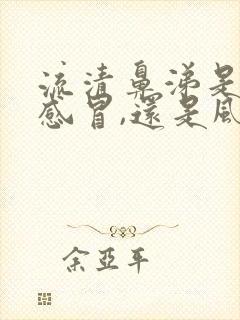 流清鼻涕是
感冒,還是風
余亞平